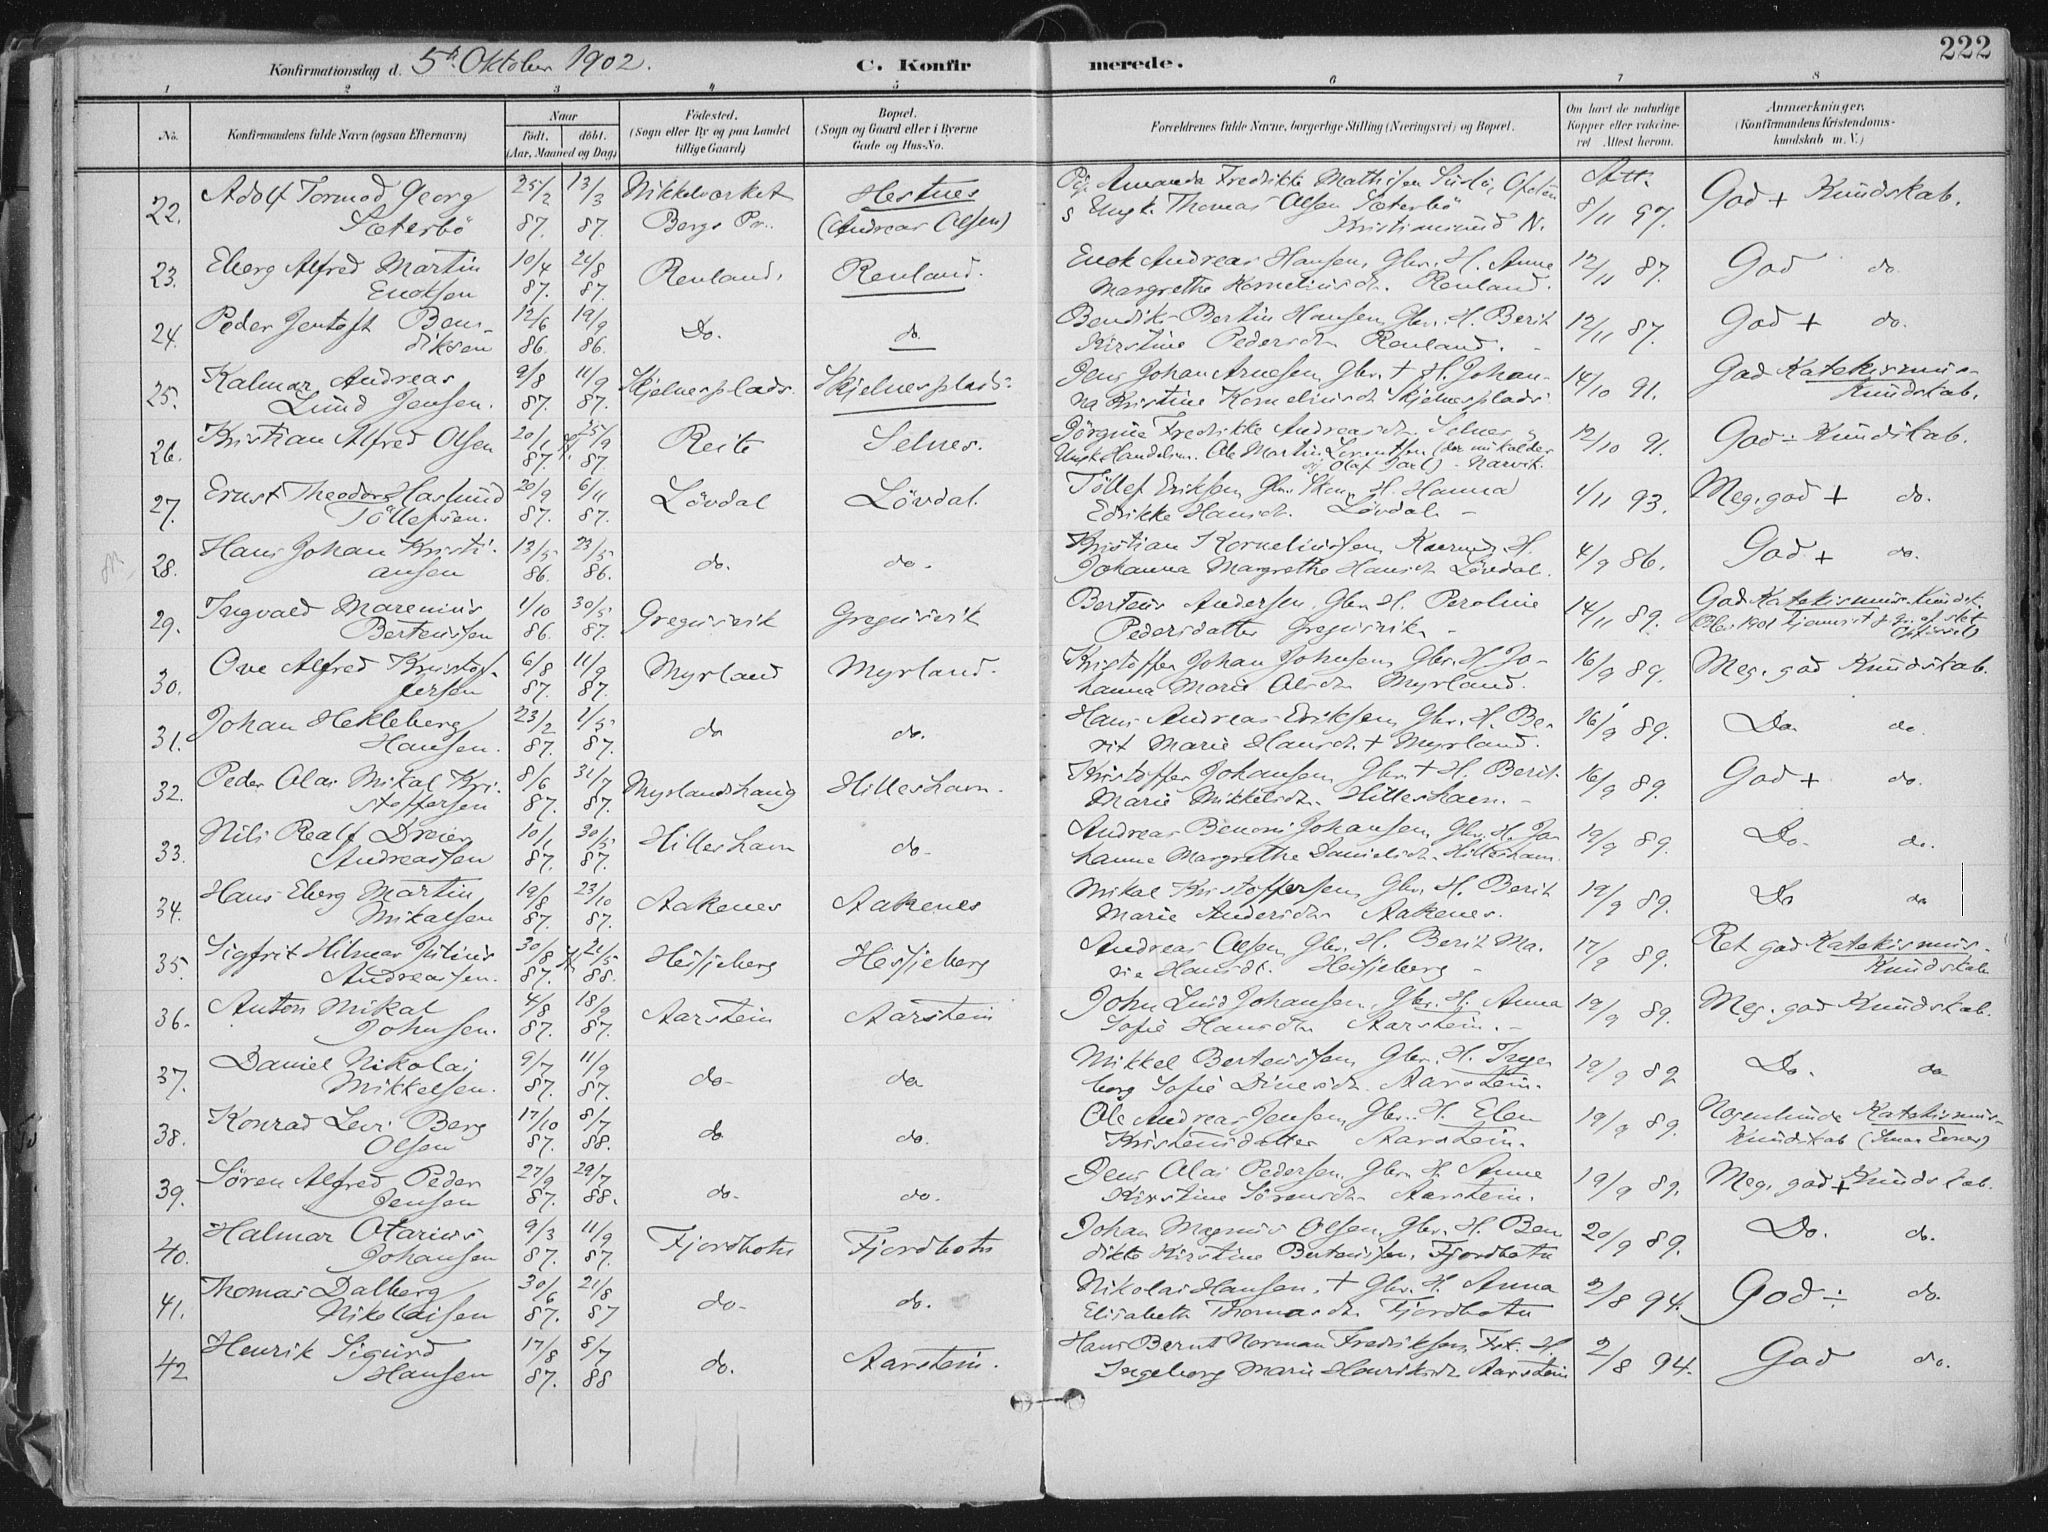 222
Konfirmationsdag d. 5te Oktober 1902.
C. Konfirmerede.
1 2 3 4 5 6 7 8
No. Konfirmandens fulde Navn (ogsaa Efternavn) Naar født. døbt. (Aar, Maaned og Dag) Fødested. (Sogn eller By og paa Landet tillige Gaard) Bopæl. (Sogn og Gaard eller i Byerne Gade og Hus-No. Forældrenes fulde Navne, borgerlige Stilling (Næringsvei) og Bopæl. Om havt de naturlige Kopper eller vakcineret. Attest herom. Anmærkninger. (Konfirmandens Kristendomskundskab m. V.)
22. Adolf Tormod Georg 25/2 13/3 Nikkelværket Hestnes Pige Amanda Fredrikke Mathisen Att. God + Kundskab.
Sæterbö 87. 87. Bergs Pr. (Andreas Olsen) Ungk. Thomas Olsen Sæterbö 8/11 97.
Kristiansund N.
23. Eberg Alfred Martin 10/4 21/8 Renland. Renland. Enok Andreas Hansen, Gbr. H. Anne 12/11 87. God do.
Enoksen 87. 87. Margrethe Korneliusdr. Renland.
24. Peder Jentoft Ben- 12/6 19/9 Do. do. Bendik Bertin Hansen, Gbr. H. Berit 12/11 87. God + do.
diksen 86. 86. Kirstine Pedersdr. Renland.
25. Kalmar Andreas 9/8 11/9 Skjelnesplads. Skjelnesplads. Jens Johan Arnesen, Gbr. + H. Johan- 14/10 91. God Katekismus-
Lund Jensen. 87. 87. na Kristine Korneliusdr. Skjelnesplads Kundskab.
26. Kristian Alfred Olsen 20/1 25/9 Reite Selnes. Jörgine Fredrikke Andreasdr. Selnes 12/10 91. God ÷ Kundskab.
87. 87. Ungk. Handelsm. Ole Martin Lorentsen (der nu kalder
sig Olaf Dael) - Narvik.
27. Ernst Theodor Haslund 20/9 6/11 Lövdal Lövdal. Töllef Eriksen, Gbr. H. Hanna 1/11 93. Meg. god + do.
Töllefsen. 87. 87. Edrikke Hansdr. Lövdal
28. Hans Johan Kristi- 13/5 23/5 do. do. Kristian Korneliussen H. 4/9 86. God + do.
ansen 86. 86. Johanna Margrethe Hansdr. Lövdal.
29. Ingvald Marenius 1/10 30/5 Gregusvik Gregusvik Berteus Andersen, Gbr. H. Peroline 14/11 89. God Katekismus-Kundsk.
Berteussen 86. 87. Pedersdatter Gregusvik
30. Ove Alfred Kristof- 6/8 11/9 Myrland Myrland. Kristoffer Johan Johnsen, Gbr. H. Jo- 16/9 89. Meg. god Kundskab.
fersen 87. 87. hanna Marie Olsdr. Myrland.
31. Johan Hekleberg 23/2 1/5 do do. Hans Andreas Eriksen, Gbr. H. Be- 16/9 89. Do. do.
Hansen. 87. 87. rit Marie Hansdr. + Myrland.
32. Peder Olai Mikal Kri- 8/6 31/7 Myrlandshaug Hilleshavn. Kristoffer Johansen, Gbr. + H. Berit 16/9 89. God + do.
stoffersen 87. 87. Marie Mikkelsdr. Hilleshavn.
33. Nils Realf Dreier 10/1 30/5 Hilleshavn do. Andreas Benoni Johansen, Gbr. H. Jo- 19/9 89. Do. do.
Andreassen 87. 87. hanne Margrethe Danielsdr. Hilleshavn.
34. Hans Eberg Martin 19/8 23/10 Aakenes Aakenes Mikal Kristoffersen, Gbr. H. Berit 19/9 89. Do do
Mikalsen 87. 87. Marie Andersdr. Aakenes.
35. Sigfrit Hilmar Julius 30/8 21/5 Hesjeberg Hesjeberg Andreas Olsen, Gbr. H. Berit Ma- 17/9 89. Ret god Katekismus-
Andreassen. 87. 88. rie Hansdr. Hesjeberg Kundskab
36. Anton Mikal 4/8 18/9 Aarstein Aarstein John Lund Johansen, Gbr. H. Anna 19/9 89. Meg. god Kundskab.
Johnsen. 87. 87. Sofie Hansdr. Aarstein.
37. Daniel Nikolai 9/7 11/9 do. do Mikkel Berteussen, Gbr. H. Inge- 19/9 89 Do. do
Mikkelsen. 87. 87. borg Sofie Dinesdr. Aarstein.
38. Konrad Levi Berg 17/10 8/7 do do. Ole Andreas Jensen, Gbr. H. Elen 19/9 89. Nogenlunde Katekismus-
Olsen 87. 88. Kristensdatter Aarstein. Kundskab (Smaa Evner)
39. Sören Alfred Peder 27/9 29/7 do. do. Jens Olai Pedersen, Gbr. H. Anne 19/9 89. Meg. god + Kundskab.
Jensen 87. 88. Kirstine Sörensdr. Aarstein.
40. Halmar Otarius 9/3 11/9 Fjordbotn Fjordbotn Johan Magnus Olsen, Gbr. H. Ben 20/9 89. Do. do.
Johansen 87. 87. dikte Kirstine Berteussen, Fjordbotn
41. Thomas Dalberg 30/6 21/8 do. do. Nikolai Hansen, + Gbr. H. Anna 2/8 94. God ÷ do.
Nikolaisen 87. 87 Elisabeth Thomasdr. Fjordbotn
42 Henrik Sigurd 17/8 8/7 do. Aarstein. Hans Bernt Norman Fredriksen, Fsk. H. 2/8 94. God do.
Hansen 87. 88 Ingeborg Marie Henriksdr. Aarstein